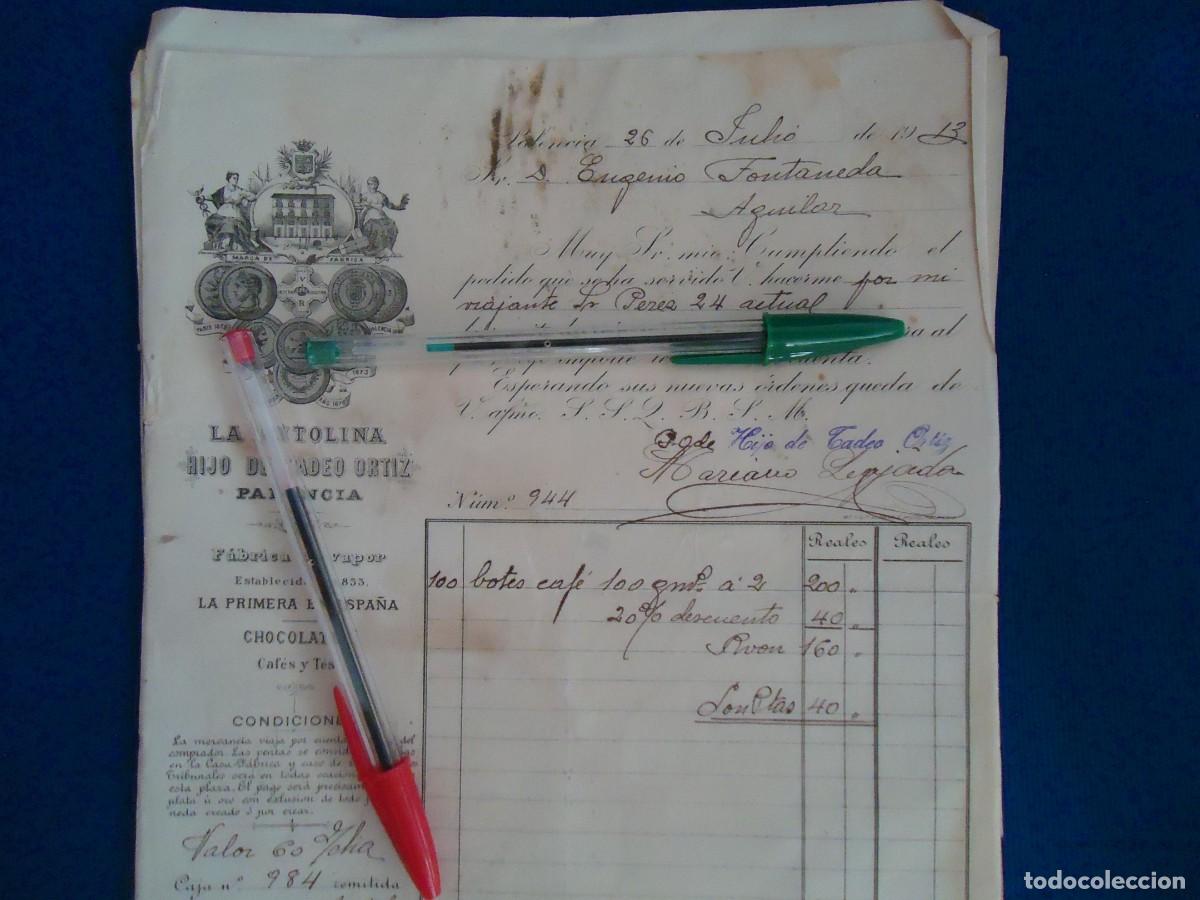 Palencia 26 de Julio de 1913
Sr. D. Eugenio Fontaneda
Aguilar
Muy Sr. mio: Cumpliendo el
pedido que se ha servido V. hacerme por mi
viajante Sr Perez 24 actual
al
importe cuenta.
Esperando sus nuevas órdenes queda de
V. afmo. S. S. Q. B. S. M.
P. O. de Hijo de Tadeo Ortiz
Mariano
Núm.º 944
MARCA DE FÁBRICA
PARIS 1878
VALENCIA
1873
LA
HIJO DE TADEO ORTIZ
PALENCIA
Fábrica vapor
Establecid 853.
LA PRIMERA E ESPAÑA
CHOCOLAT
Cafés y Tés
CONDICIONE
La mercancia viaja por cuenta del
comprador. Las ventas se
en la Casa Fábrica y caso de
Tribunales será en todas
esta plaza. El pago será precisam
plata ú oro con exlusion de todo
neda creado ó por crear.
Valor 60
Caja nº 984 remitida
Reales Reales
100 botes café 100 gms. á 2 200 "
20% descuento 40 "
Rvon 160 "
Son Ptas 40 "
todocoleccion